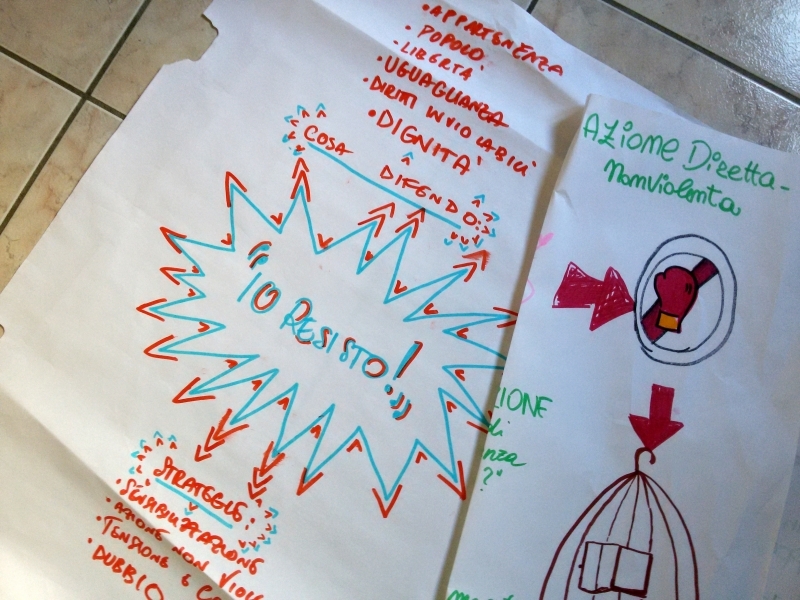 • APPARTENENZA
• POPOLO
- LIBERTÀ
• UGUAGLIANZA
• DIRITTI INVIOLABILI
• DIGNITÀ
COSA DIFENDO:
"IO RESISTO!"
STRATEGIE:
• SENSIBILIZZAZIONE
• AZIONE NON VIOL
• TENSIONE E C
• DUBBIO
AZIONE DIRETTA -
NONVIOLENTA
ZIONE
di
nza
?"